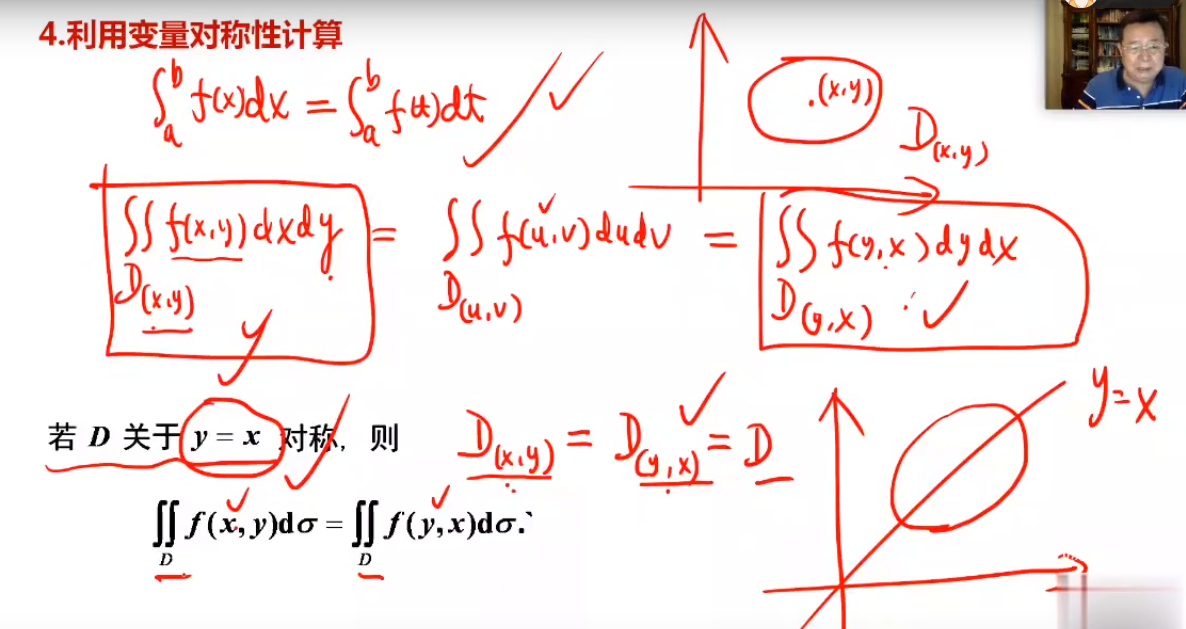 4.利用变量对称性计算
∫_a^b f(x)dx = ∫_a^b f(t)dt
.(x,y)
D(x,y)
∬_{D(x,y)} f(x,y)dxdy = ∬_{D(u,v)} f(u,v)dudv = ∬_{D(y,x)} f(y,x)dydx
y=x
若 D 关于 y = x 对称, 则 D(x,y) = D(y,x) = D
∬_D f(x,y)dσ = ∬_D f(y,x)dσ.